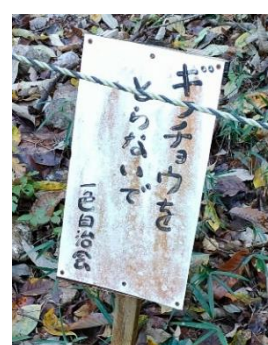 ギフチョウを
とらないで
一色自治会